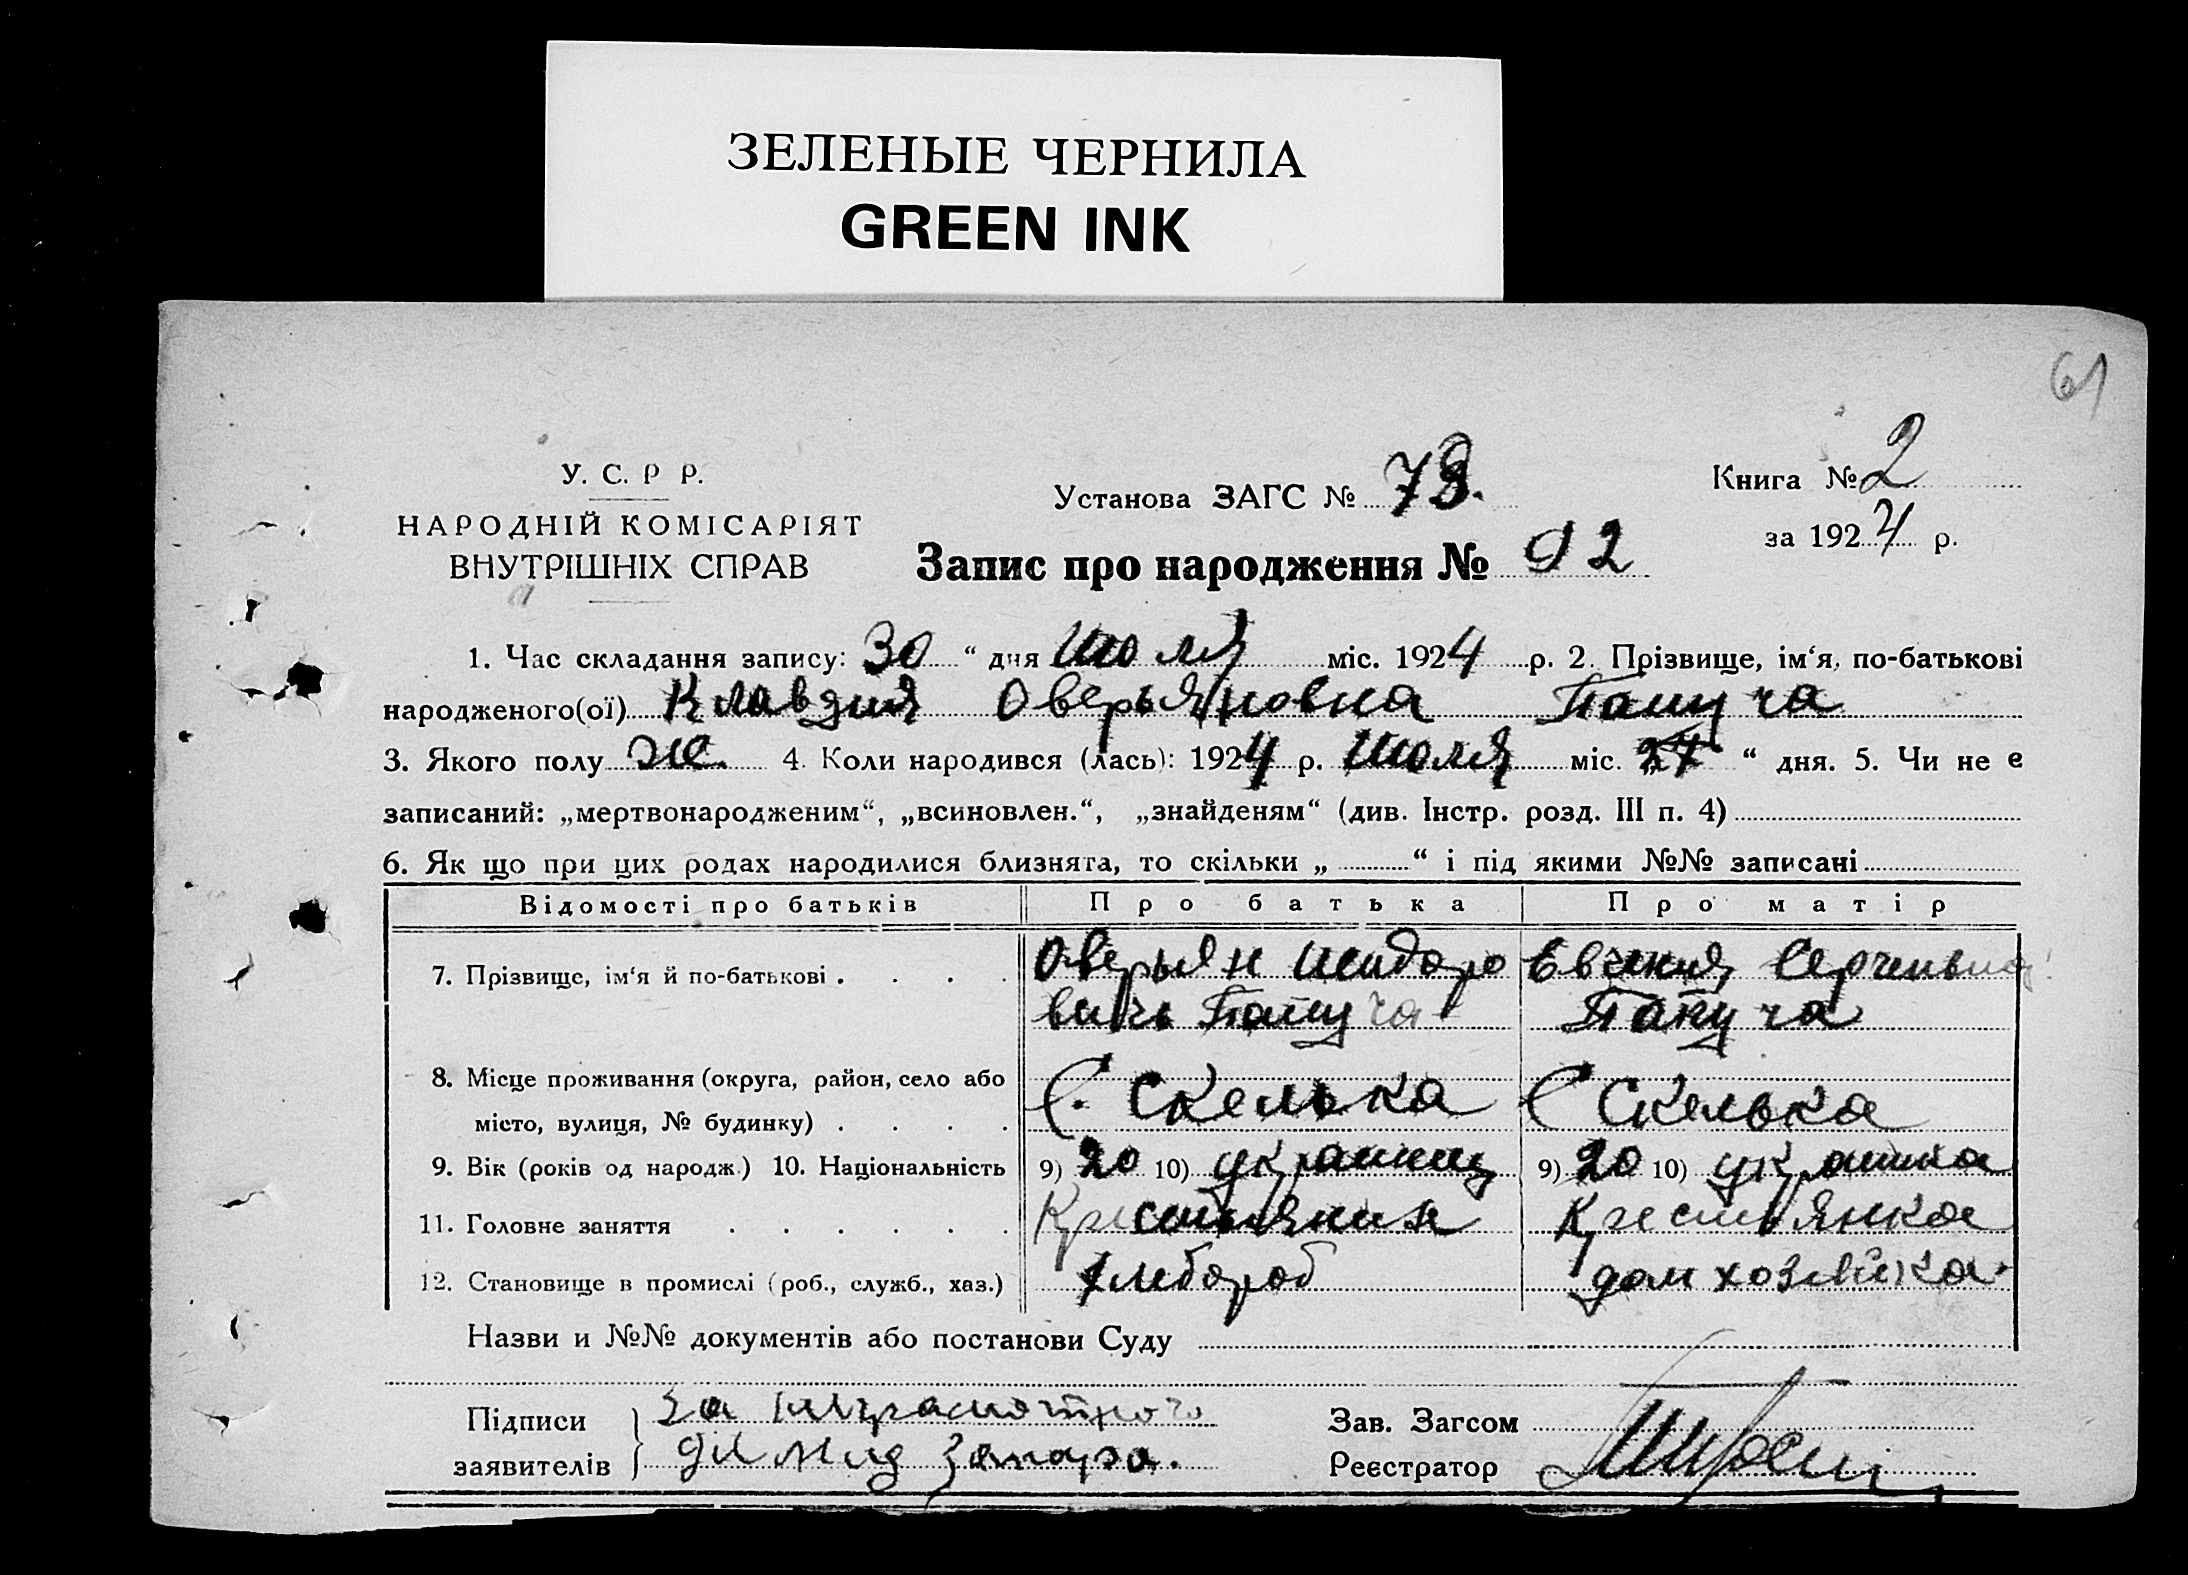 ЗЕЛЕНЫЕ ЧЕРНИЛА
GREEN INK
61
У. С. Р Р.
НАРОДНІЙ КОМІСАРІЯТ
ВНУТРІШНІХ СПРАВ
Установа ЗАГС № 73.
Книга № 2
за 1924 р.
Запис про народження № 92
1. Час складання запису: 30 “ дня Июля міс. 1924 р. 2. Прізвище, ім‘я, по-батькові
народженого(ої) Клавдия Оверьяновна
3. Якого полу Ж. 4. Коли народився (лась): 1924 р. Июля міс. „27 “ дня. 5. Чи не є
записаний: „мертвонародженим“, „всиновлен.“, „знайденям“ (див. Інстр. розд. III п. 4)
6. Як що при цих родах народилися близнята, то скільки „ “ і під якими №№ записані
Відомості про батьків Про батька Про матір
7. Прізвище, ім‘я й по-батькові . . . . Оверьян Исидоро Евгения
вичь
8. Місце проживання (округа, район, село або
місто, вулиця, № будинку) . . . . С. Скелька С Скелька
9. Вік (років од народж.) 10. Національність 9) 20 10) украинец 9) 20 10) украинка
11. Головне заняття . . . . . . Крестьянин Крестьянка
12. Становище в промислі (роб., служб., хаз.) хлебороб дом хозяйка.
Назви и №№ документів або постанови Суду
Підписи За неграмотного
заявителів
Зав. Загсом
Реєстратор